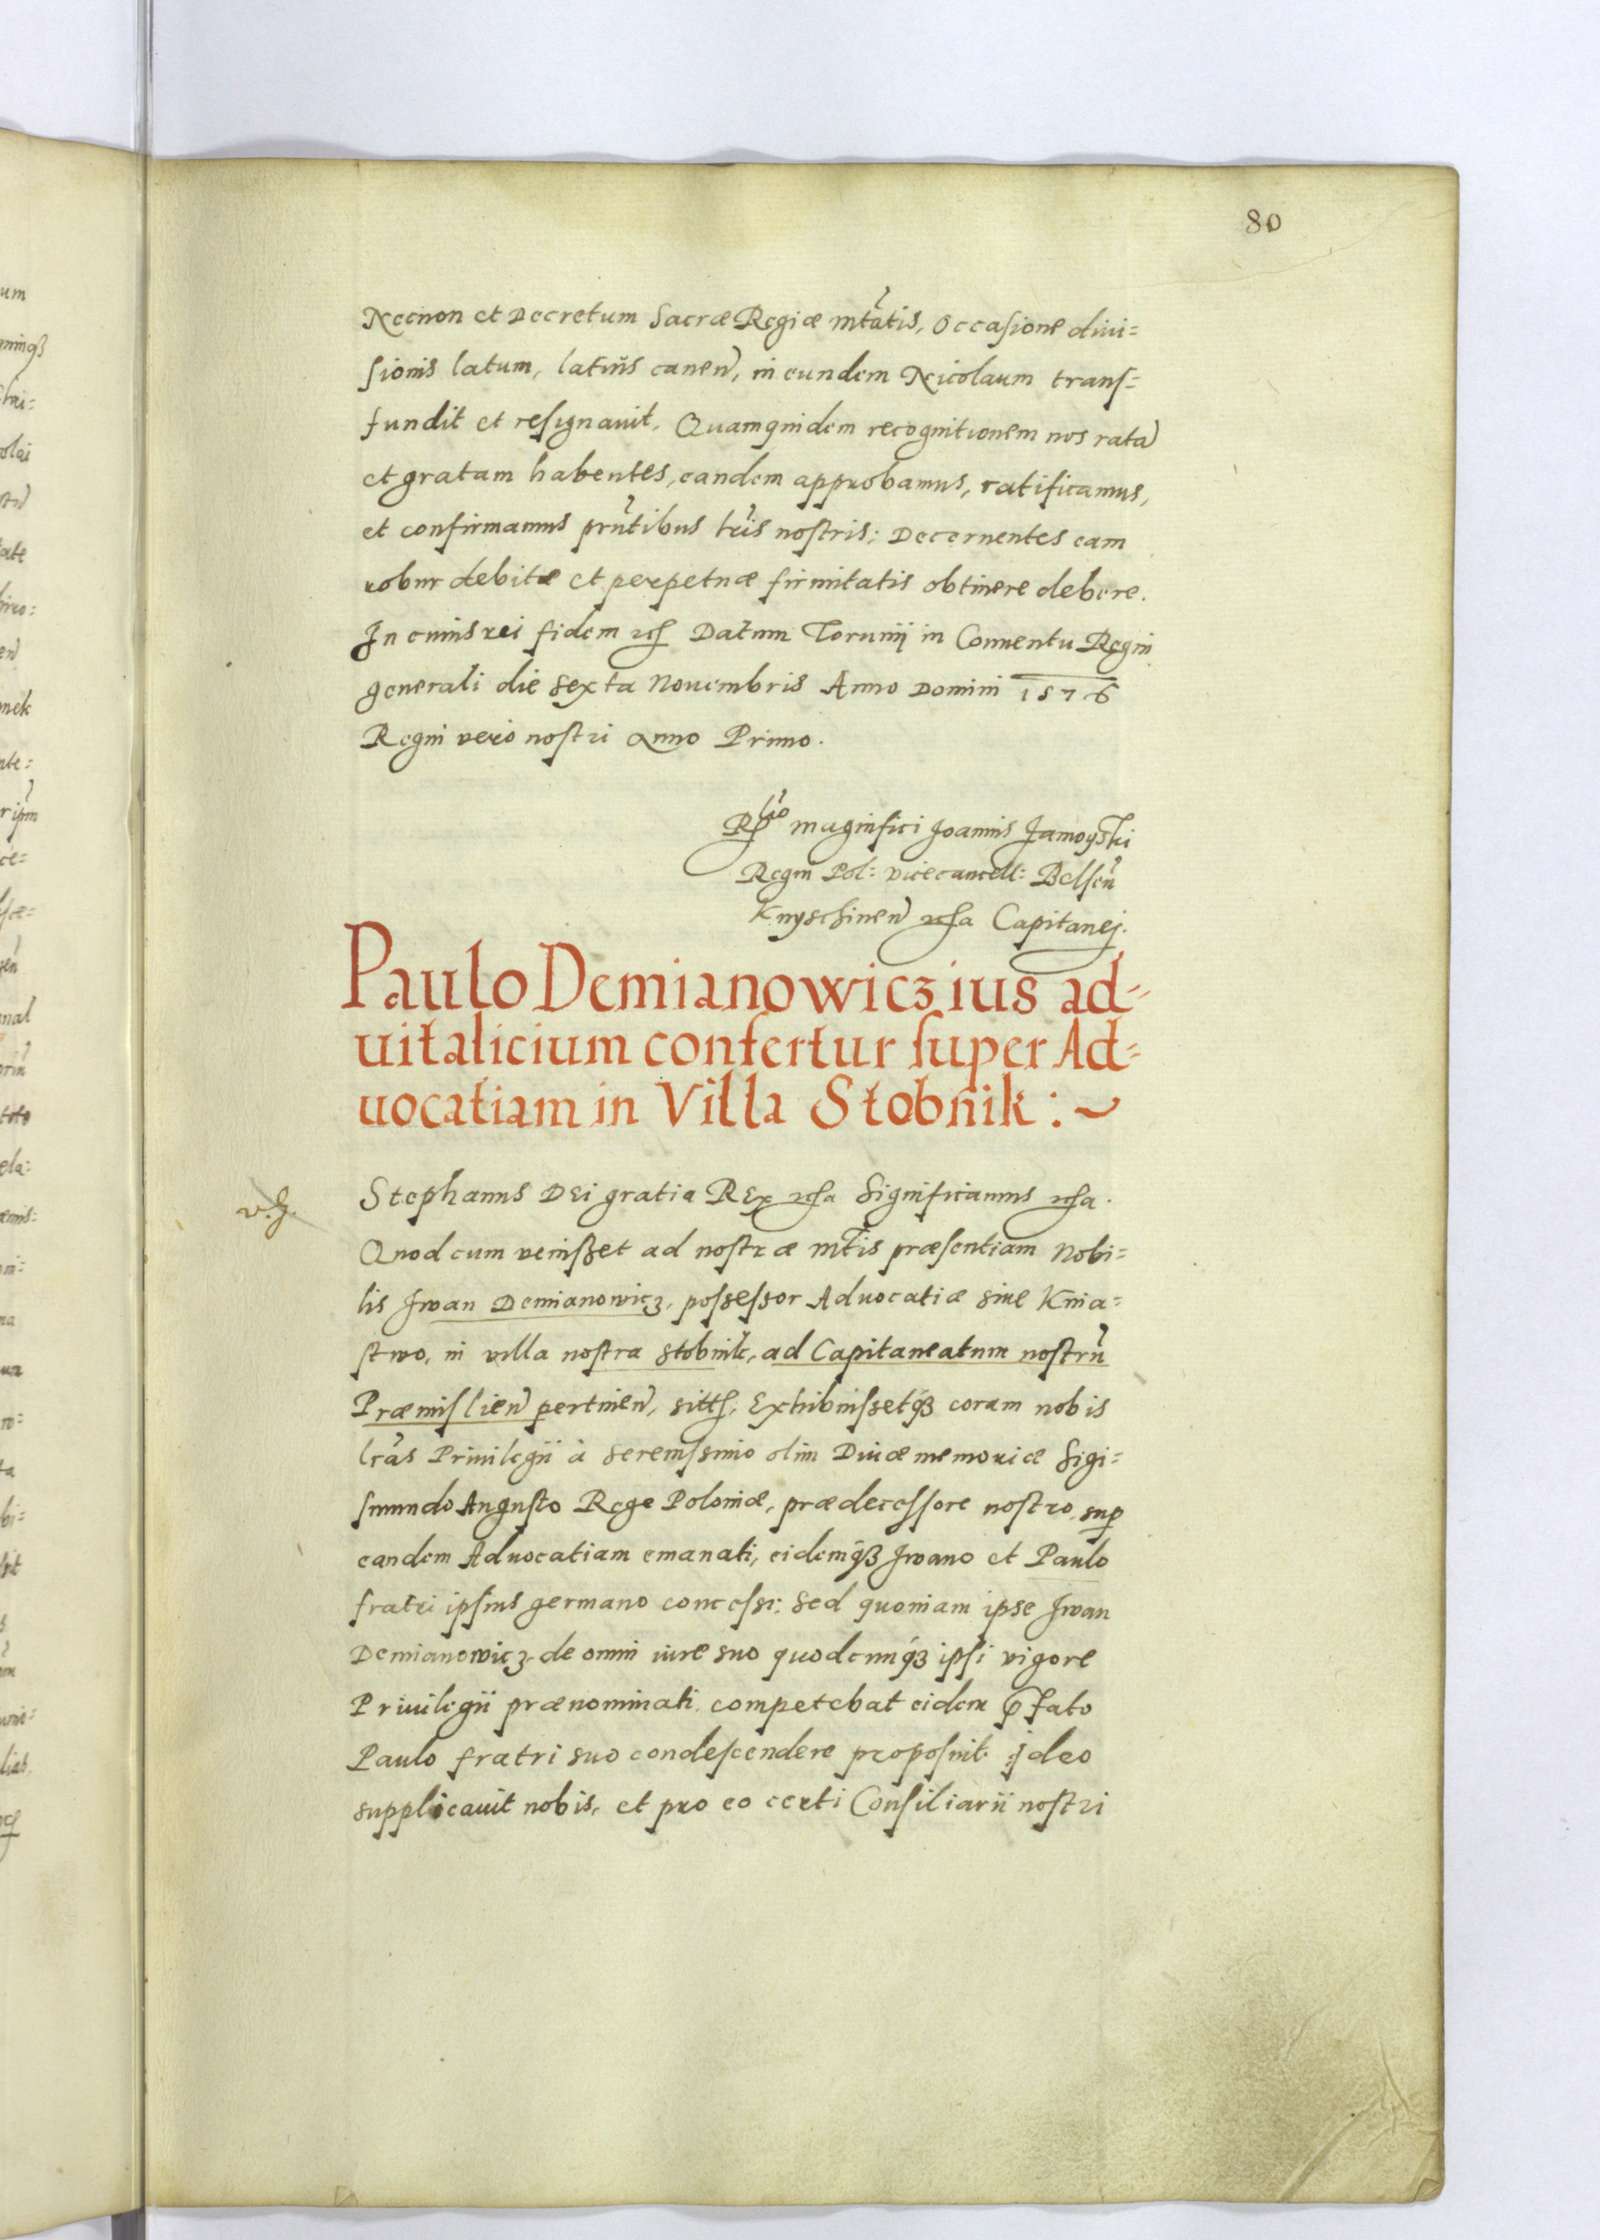 80
Necnon et Decretum Sacræ Regiæ mtãtis, Occasione diui=
sionis latum, latiũs canen̄, in eundem Nicolaum trans=
fundit et resignauit. Quamquidem recognitionem nos ratã
et gratam habentes, eandem approbamus, ratificamus,
et confirmamus prñtibus lr̃is nostris; Decernentes eam
robur debitæ et perpetuæ firmitatis obtinere debere.
In cuius rei fidem etc̃ Datum Torunij in Conuentu Regni
generali die sexta Nouembris Anno Domini 1576
Regni vero nostri Anno Primo.
Rel̃io magnifici Joannis Zamoyski
Regni Pol: vicecancell: Belsen̄
Knyschinen̄ etc̃a Capitanej.
Paulo Demianowiczius ad=
uitalicium confertur super Ad=
uocatiam in Villa Stobnik:
Stephanus DEi gratia REx etc̃a Significamus etc̃a.
Quod cum venisset ad nostræ mt̃is præsentiam Nobi=
lis Jwan Demianowicz, possessor Aduocatiæ siue Knia=
stwo, in villa nostra Stobnik, ad Capitaneatum nostrũ
Præmislien̄ pertinen̄, sitt̃, Exhibuissetq́ꝫ coram nobis
lr̃as Priuilegii à serenissimo olim Diuæ memoriæ Sigi=
smundo Augusto Rege Poloniæ, prædecessore nostro, sup̱
eandem Aduocatiam emanati, eidemq́ꝫ Jwano et Paulo
fratri ipsius germano concessi; Sed quoniam ipse Jwan
Demianowicz, de omni iure suo quodcunq́ꝫ ipsi vigore
Priuilegii prænominati competebat eidem p̱fato
Paulo fratri suo condescendere proposuit. ideo
supplicauit nobis, et pro eo certi Consiliarii nostri